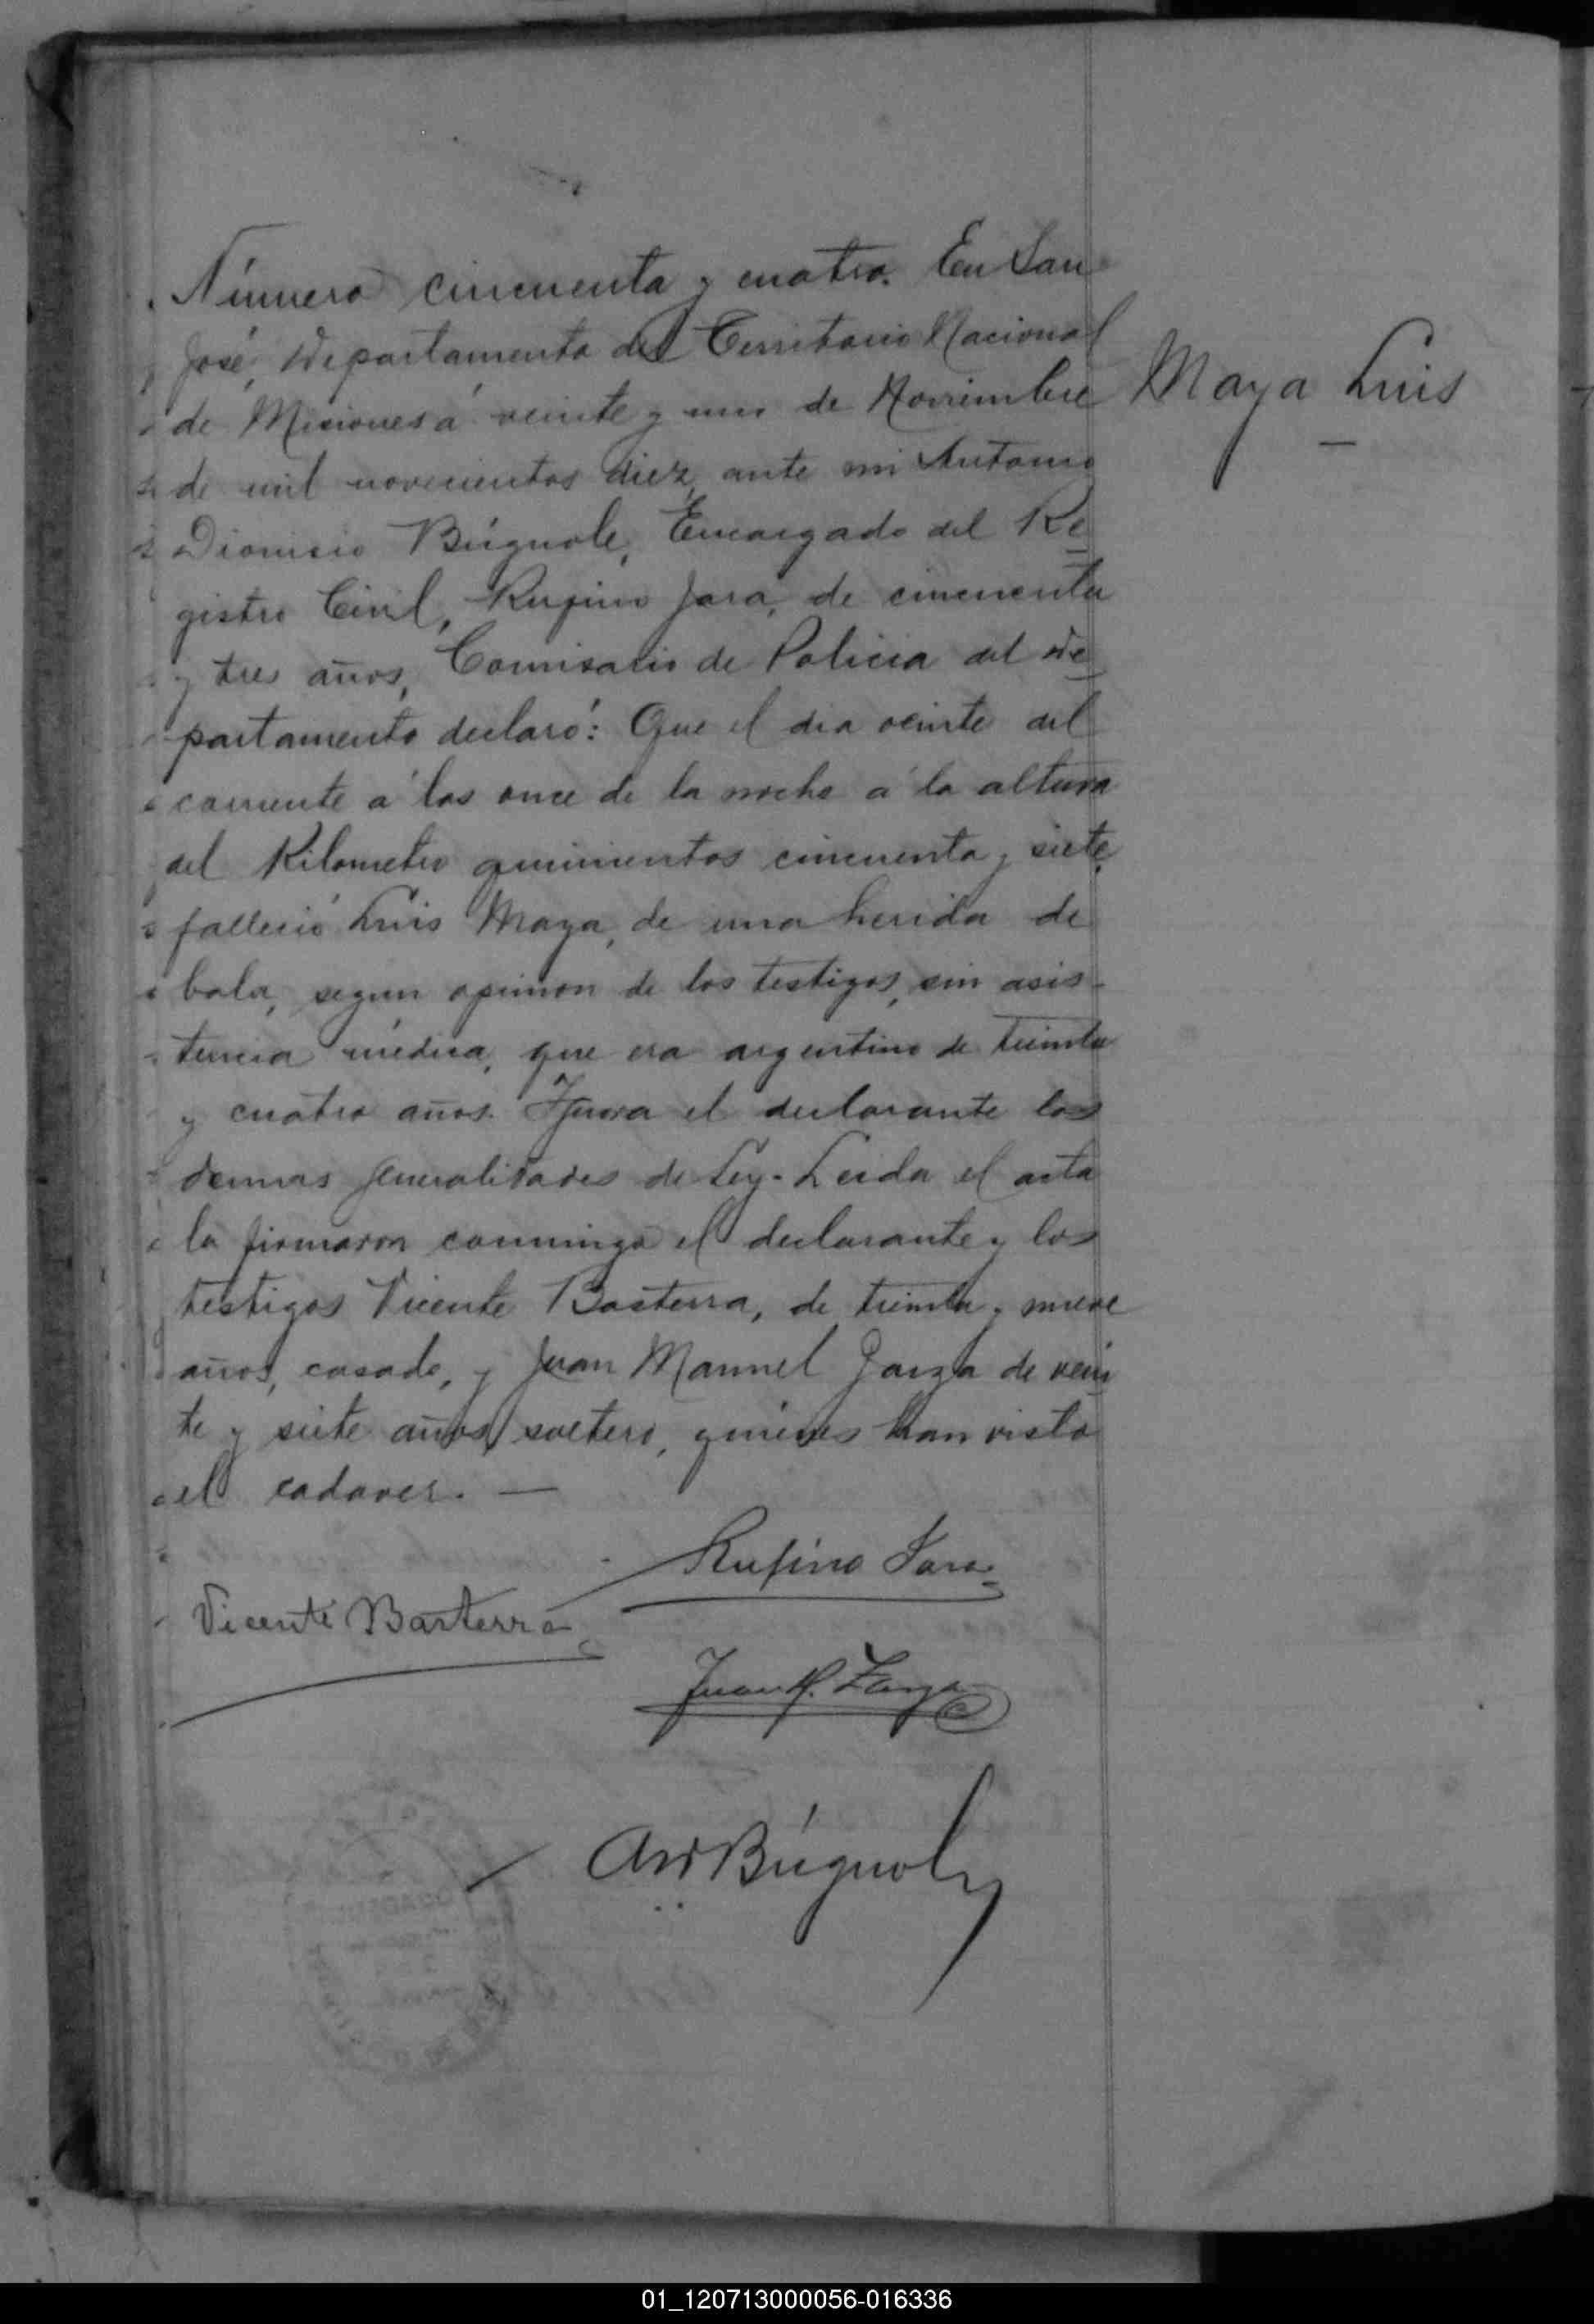 Número cincuenta y cuatro. En San
José, Departamento del Territorio Nacional
Maya Luis
de Misiones á veinte y uno de Noviembre
de mil novecientos diez, ante mi Antonio
Dionisio Búgnole, Encargado del Re
gistro Civil, Rufino Jara, de cincuenta
y tres años, Comisario de Policia del De
partamento declaró: Que el dia veinte del
corriente á las once de la noche á la altura
del Kilometro quinientos cincuenta y siete,
falleció Luis Maya, de una herida de
bala, segun opinion de los testigos, sin asis-
tencia médica, que era argentino de treinta
y cuatro años. Ignora el declarante las
demas generalidades de Ley. Leida el acta
la firmaron conmingo el declarante y los
testigos Vicente Basterra, de treinta y nueve
años, casado, y Juan Manuel Zarza de vein
te y siete años, soltero, quiénes han visto
el cadaver. —
Rufino Jara
Vicente Basterra
Juan M. Zarza
AD Búgnole
01_120713000056-016336